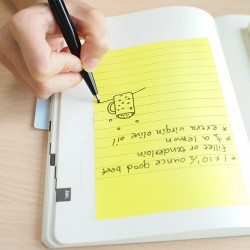 * 1 x 10½ ounce good beef
fillet or tenderloin
* ½ a lemon
* extra virgin olive oil